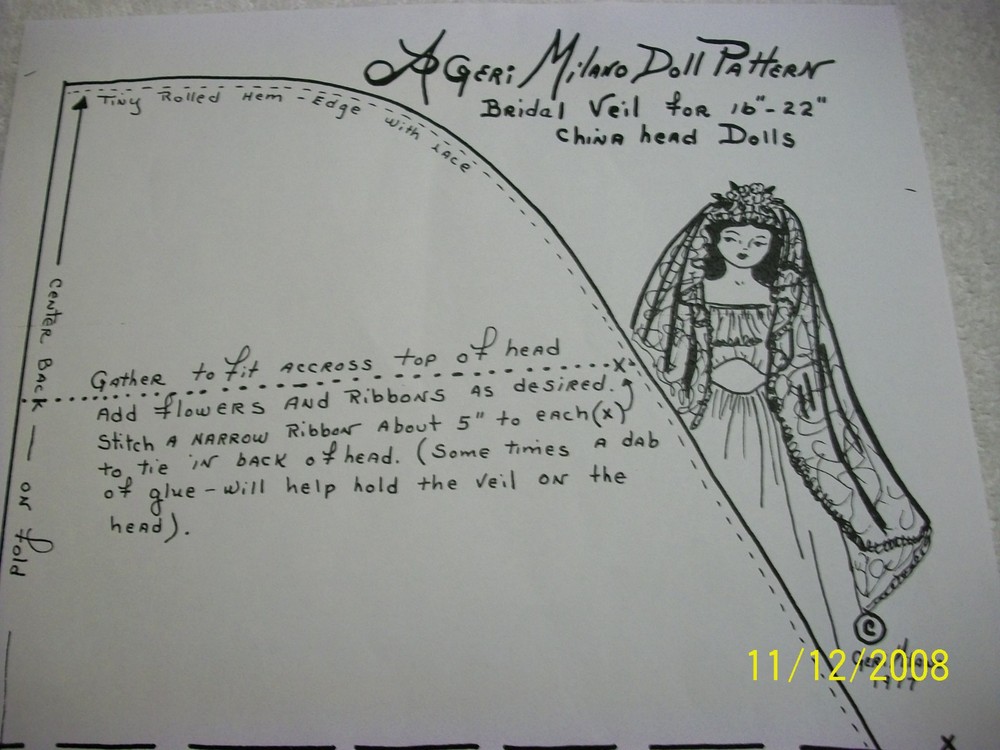 A Geri Milano Doll Pattern
Bridal Veil for 16"-22"
China head Dolls
Tiny Rolled Hem - Edge with lace
Center Back — on fold
Gather to fit accross top of head
X
Add flowers and Ribbons as desired.
Stitch a narrow Ribbon About 5" to each (x)
to tie in back of head. (Some times a dab
of glue - will help hold the veil on the
head).
©
Geri
11/12/2008
X